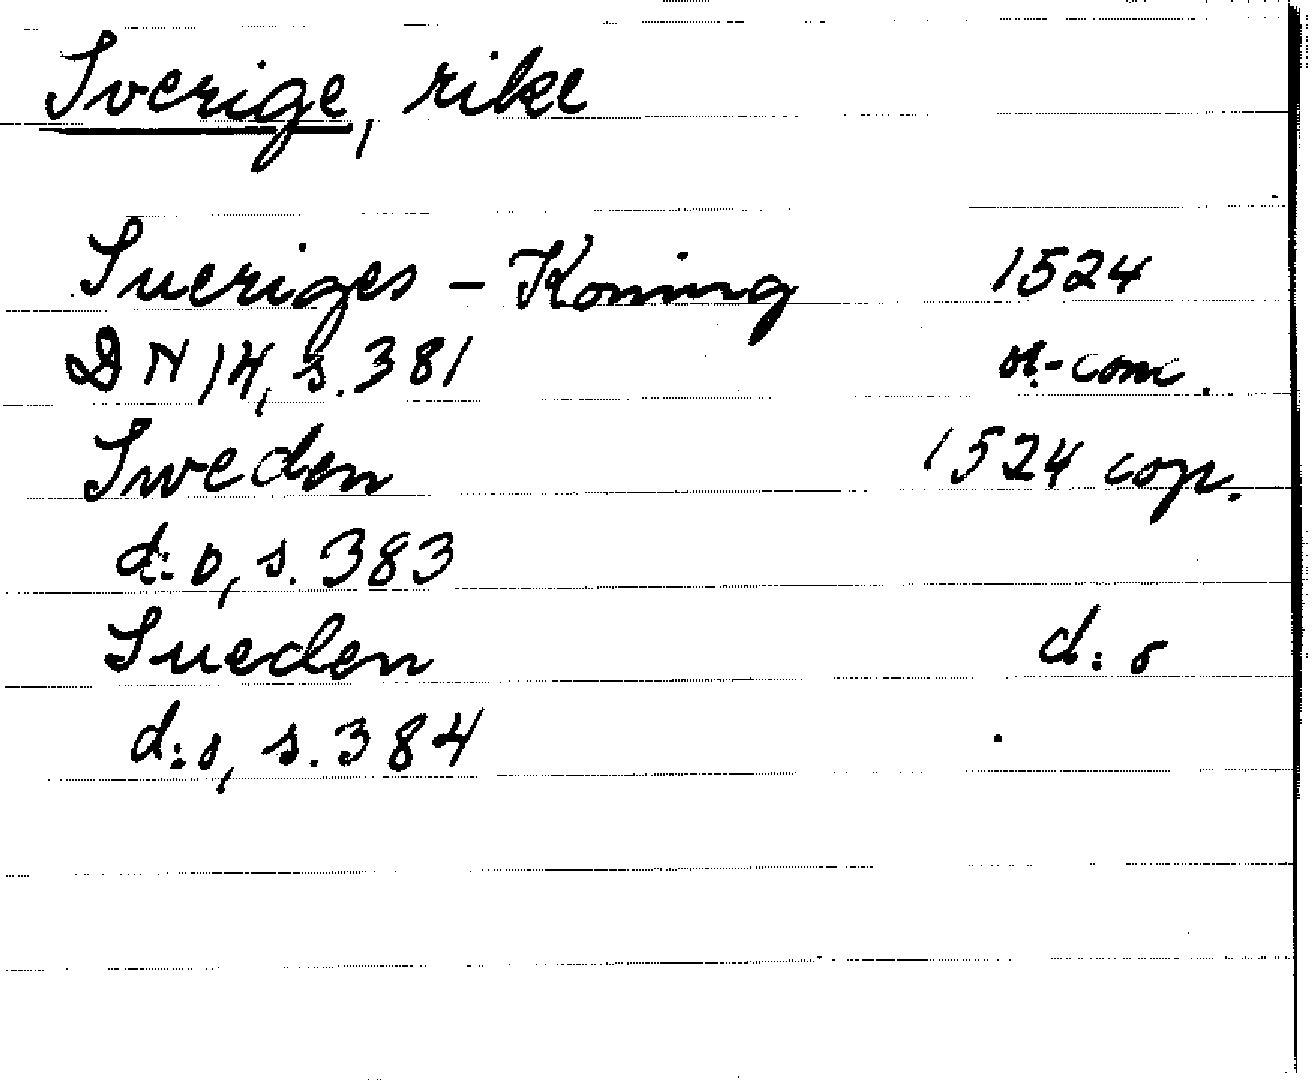 Sverige, rike
Sueriges – Koning 1524
DN 14, s. 381
Sweden 1524 cop.
d:o, s. 383
Sueden d:o
d:o, s. 384